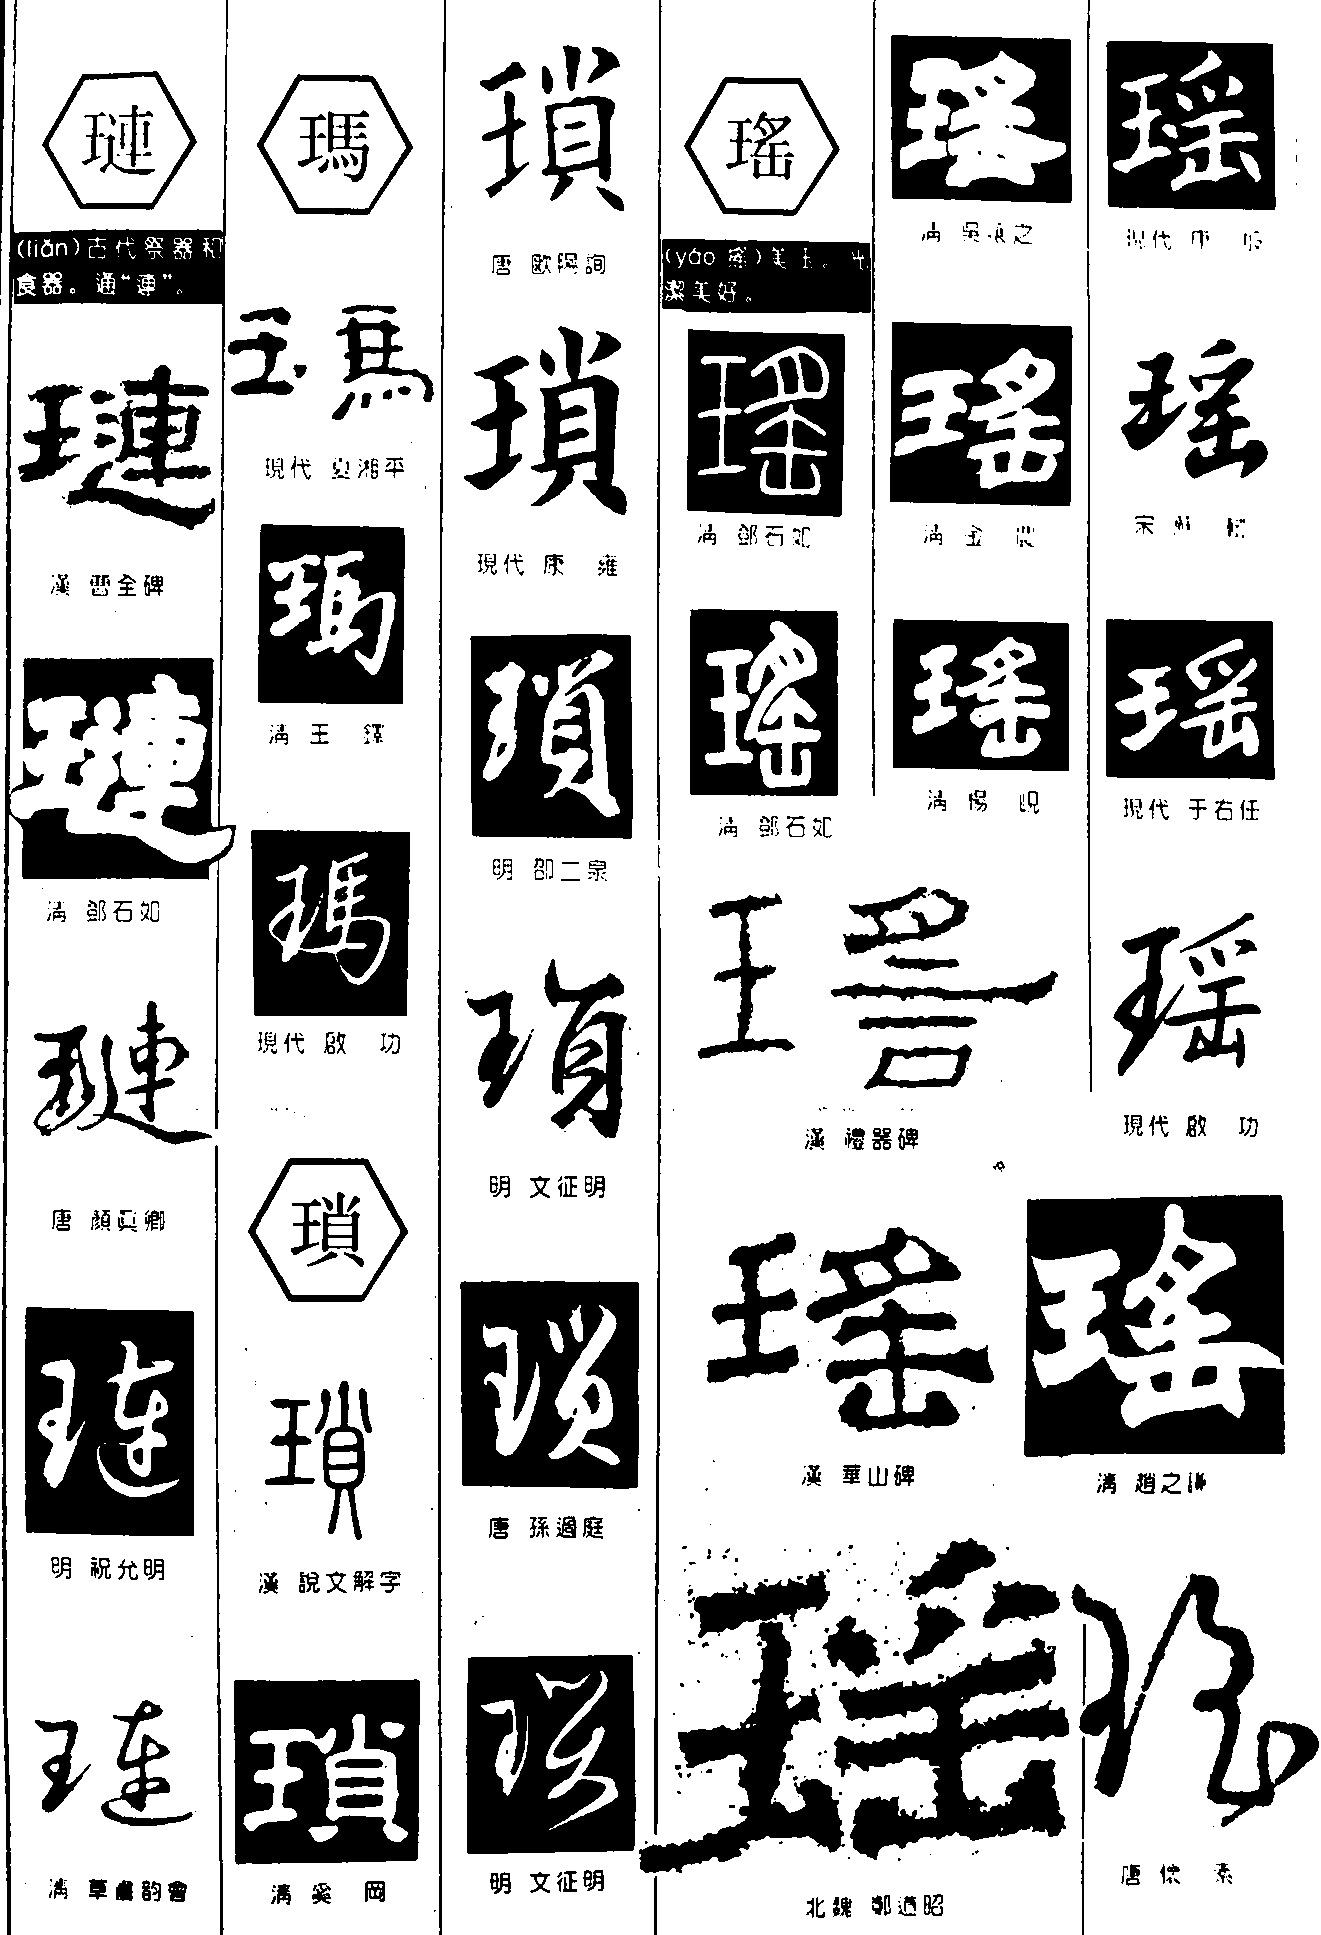 璉
(liǎn)古代祭器和
食器。通“連”。
璉
漢 曹全碑
璉
清 鄧石如
璉
唐 顏真卿
璉
明 祝允明
璉
清 草書韵會
瑪
瑪
現代 夏湘平
瑪
清 王鐸
瑪
現代 啟功
瑣
瑣
漢 說文解字
瑣
清 奚岡
瑣
唐 歐陽詢
瑣
現代 康雍
瑣
明 邵二泉
瑣
明 文征明
瑣
唐 孫過庭
瑣
明 文征明
瑤
(yáo 窰)美玉。光
潔美好。
瑤
清 鄧石如
瑤
清 鄧石如
瑤
漢 禮器碑
瑤
漢 華山碑
瑤
北魏 鄭道昭
瑤
清 吳讓之
瑤
清 金農
瑤
清 楊峴
瑤
現代 康
瑤
宋 蘇軾
瑤
現代 于右任
瑤
現代 啟功
瑤
清 趙之謙
瑤
唐 懷素